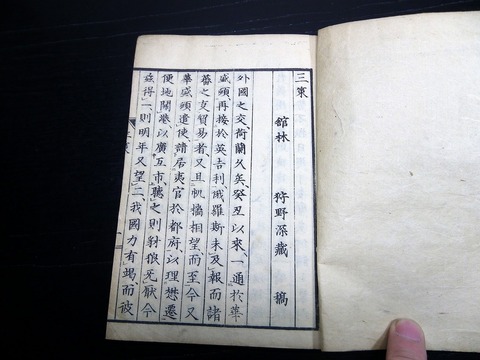 三策
館林 狩野深蔵 稿
外國之交荷蘭久矣、癸丑以來、一通於華
盛頓、再接於英吉利、俄羅斯未及報而諸
蕃之支貿易者又且帆檣相望、而至今又
華盛頓遣使、請居夷官於都府、以理懋遷、
便地開港、以廣互市、聽之則豺狼旡厭、今
玆得一、則明年又望二、我國力有竭、而彼